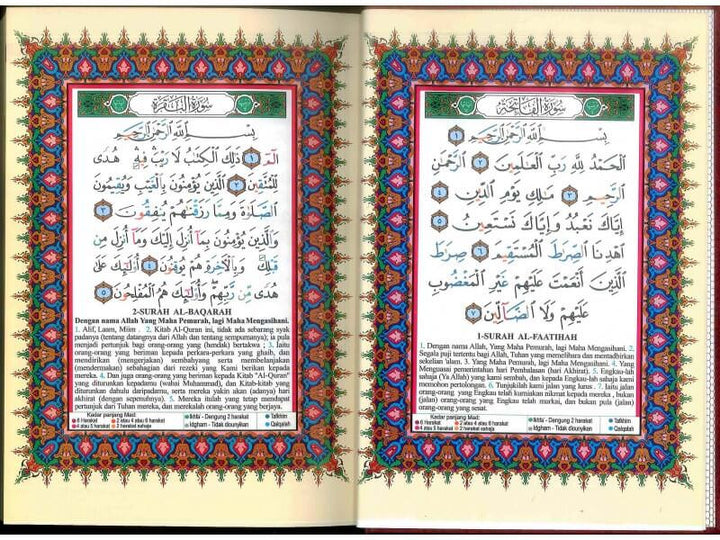 سُورَةُ الْفَاتِحَةِ
بِسْمِ اللَّهِ الرَّحْمَٰنِ الرَّحِيمِ ١
الْحَمْدُ لِلَّهِ رَبِّ الْعَالَمِينَ ٢ الرَّحْمَٰنِ
الرَّحِيمِ ٣ مَالِكِ يَوْمِ الدِّينِ ٤
إِيَّاكَ نَعْبُدُ وَإِيَّاكَ نَسْتَعِينُ ٥
اهْدِنَا الصِّرَاطَ الْمُسْتَقِيمَ ٦ صِرَاطَ
الَّذِينَ أَنْعَمْتَ عَلَيْهِمْ غَيْرِ الْمَغْضُوبِ
عَلَيْهِمْ وَلَا الضَّالِّينَ ٧
1-SURAH AL-FAATIHAH
1. Dengan nama Allah, Yang Maha Pemurah, lagi Maha Mengasihani. 2.
Segala puji tertentu bagi Allah, Tuhan yang memelihara dan mentadbirkan
sekelian alam. 3. Yang Maha Pemurah, lagi Maha Mengasihani. 4. Yang
Menguasai pemerintahan hari Pembalasan (hari Akhirat). 5. Engkau-lah
sahaja (Ya Allah) yang kami sembah, dan kepada Engkau-lah sahaja kami
memohon pertolongan. 6. Tunjukilah kami jalan yang lurus. 7. Iaitu jalan
orang-orang yang Engkau telah kurniakan nikmat kepada mereka, bukan
(jalan) orang-orang yang Engkau telah murkai, dan bukan pula (jalan)
orang-orang yang sesat.
Kadar panjang Mad:
6 Harakat 2 atau 4 atau 6 harakat
4 atau 5 harakat 2 harakat sahaja
Ikhfa' - Dengung 2 harakat
Idgham - Tidak dibunyikan
Tafkhim
Qalqalah
سُورَةُ الْبَقَرَةِ
بِسْمِ اللَّهِ الرَّحْمَٰنِ الرَّحِيمِ
الم ١ ذَٰلِكَ الْكِتَابُ لَا رَيْبَ فِيهِ هُدًى
لِّلْمُتَّقِينَ ٢ الَّذِينَ يُؤْمِنُونَ بِالْغَيْبِ وَيُقِيمُونَ
الصَّلَاةَ وَمِمَّا رَزَقْنَاهُمْ يُنفِقُونَ ٣
وَالَّذِينَ يُؤْمِنُونَ بِمَا أُنزِلَ إِلَيْكَ وَمَا أُنزِلَ مِن
قَبْلِكَ وَبِالْآخِرَةِ هُمْ يُوقِنُونَ ٤ أُولَٰئِكَ عَلَىٰ
هُدًى مِّن رَّبِّهِمْ وَأُولَٰئِكَ هُمُ الْمُفْلِحُونَ ٥
2-SURAH AL-BAQARAH
Dengan nama Allah Yang Maha Pemurah, lagi Maha Mengasihani.
1. Alif, Laam, Miim . 2. Kitab Al-Quran ini, tidak ada sebarang syak
padanya (tentang datangnya dari Allah dan tentang sempurnanya); ia pula
menjadi petunjuk bagi orang-orang yang (hendak) bertakwa ; 3. Iaitu
orang-orang yang beriman kepada perkara-perkara yang ghaib, dan
mendirikan (mengerjakan) sembahyang serta membelanjakan
(mendermakan) sebahagian dari rezeki yang Kami berikan kepada
mereka. 4. Dan juga orang-orang yang beriman kepada Kitab "Al-Quran"
yang diturunkan kepadamu (wahai Muhammad), dan Kitab-kitab yang
diturunkan dahulu daripadamu, serta mereka yakin akan (adanya) hari
akhirat (dengan sepenuhnya). 5. Mereka itulah yang tetap mendapat
petunjuk dari Tuhan mereka, dan merekalah orang-orang yang berjaya.
Kadar panjang Mad:
6 Harakat 2 atau 4 atau 6 harakat
4 atau 5 harakat 2 harakat sahaja
Ikhfa' - Dengung 2 harakat
Idgham - Tidak dibunyikan
Tafkhim
Qalqalah